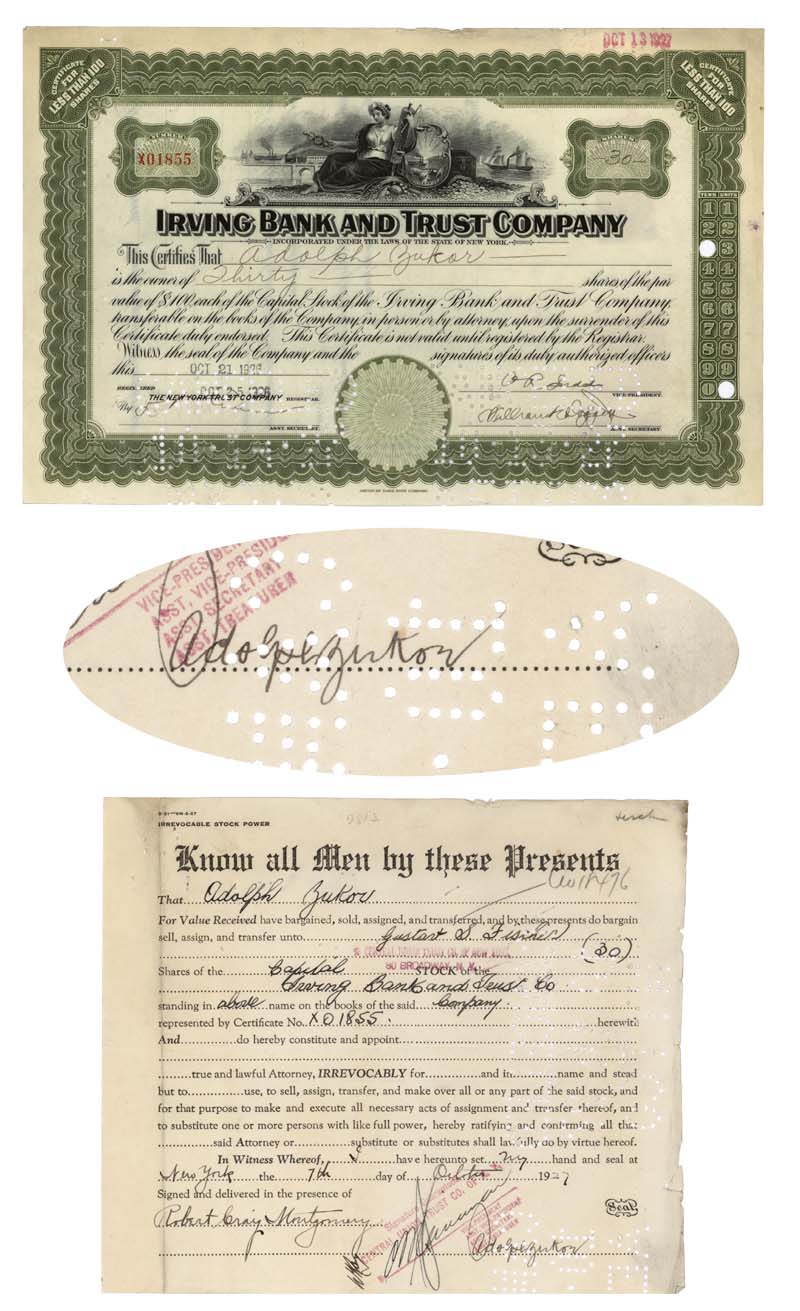 OCT 13 1927
CERTIFICATE FOR LESS THAN 100 SHARES
CERTIFICATE FOR LESS THAN 100 SHARES
NUMBER
X01855
SHARES
30
IRVING BANK AND TRUST COMPANY
INCORPORATED UNDER THE LAWS OF THE STATE OF NEW YORK.
This Certifies That Adolph Zukor
is the owner of Thirty shares of the par
value of $100. each of the Capital Stock of the Irving Bank and Trust Company,
transferable on the books of the Company, in person or by attorney, upon the surrender of this
Certificate duly endorsed. This Certificate is not valid until registered by the Registrar.
Witness, the seal of the Company and the signatures of its duly authorized officers
this OCT 21 1926
OCT 25 1926
THE NEW YORK TRUST COMPANY REGISTRAR.
By
VICE-PRESIDENT.
ASST. SECRETARY.
ASST. SECRETARY.
TENS UNITS
1 1
2 2
3
4 4
5 5
6 6
7 7
8 8
9 9
0
VICE-PRESIDENT
ASST. VICE-PRESIDENT
ASST. SECRETARY
ASST. TREASURER
Adolph Zukor
IRREVOCABLE STOCK POWER
Know all Men by these Presents
That Adolph Zukor
For Value Received have bargained, sold, assigned, and transferred, and by these presents do bargain
sell, assign, and transfer unto Gustav S.
(30)
80 BROADWAY, N.Y.
Shares of the Capital STOCK of the
Irving Bank and Trust Co
standing in above name on the books of the said Company.
represented by Certificate No. X01855. herewith
And do hereby constitute and appoint
true and lawful Attorney, IRREVOCABLY for and in name and stead
but to use, to sell, assign, transfer, and make over all or any part of the said stock, and
for that purpose to make and execute all necessary acts of assignment and transfer thereof, and
to substitute one or more persons with like full power, hereby ratifying and confirming all that
said Attorney or substitute or substitutes shall lawfully do by virtue hereof.
In Witness Whereof, I have hereunto set my hand and seal at
New York the 7th day of October 1927
Signed and delivered in the presence of
Robert Craig Montgomery
CENTRAL UNION TRUST CO. OF
Seal
Adolph Zukor